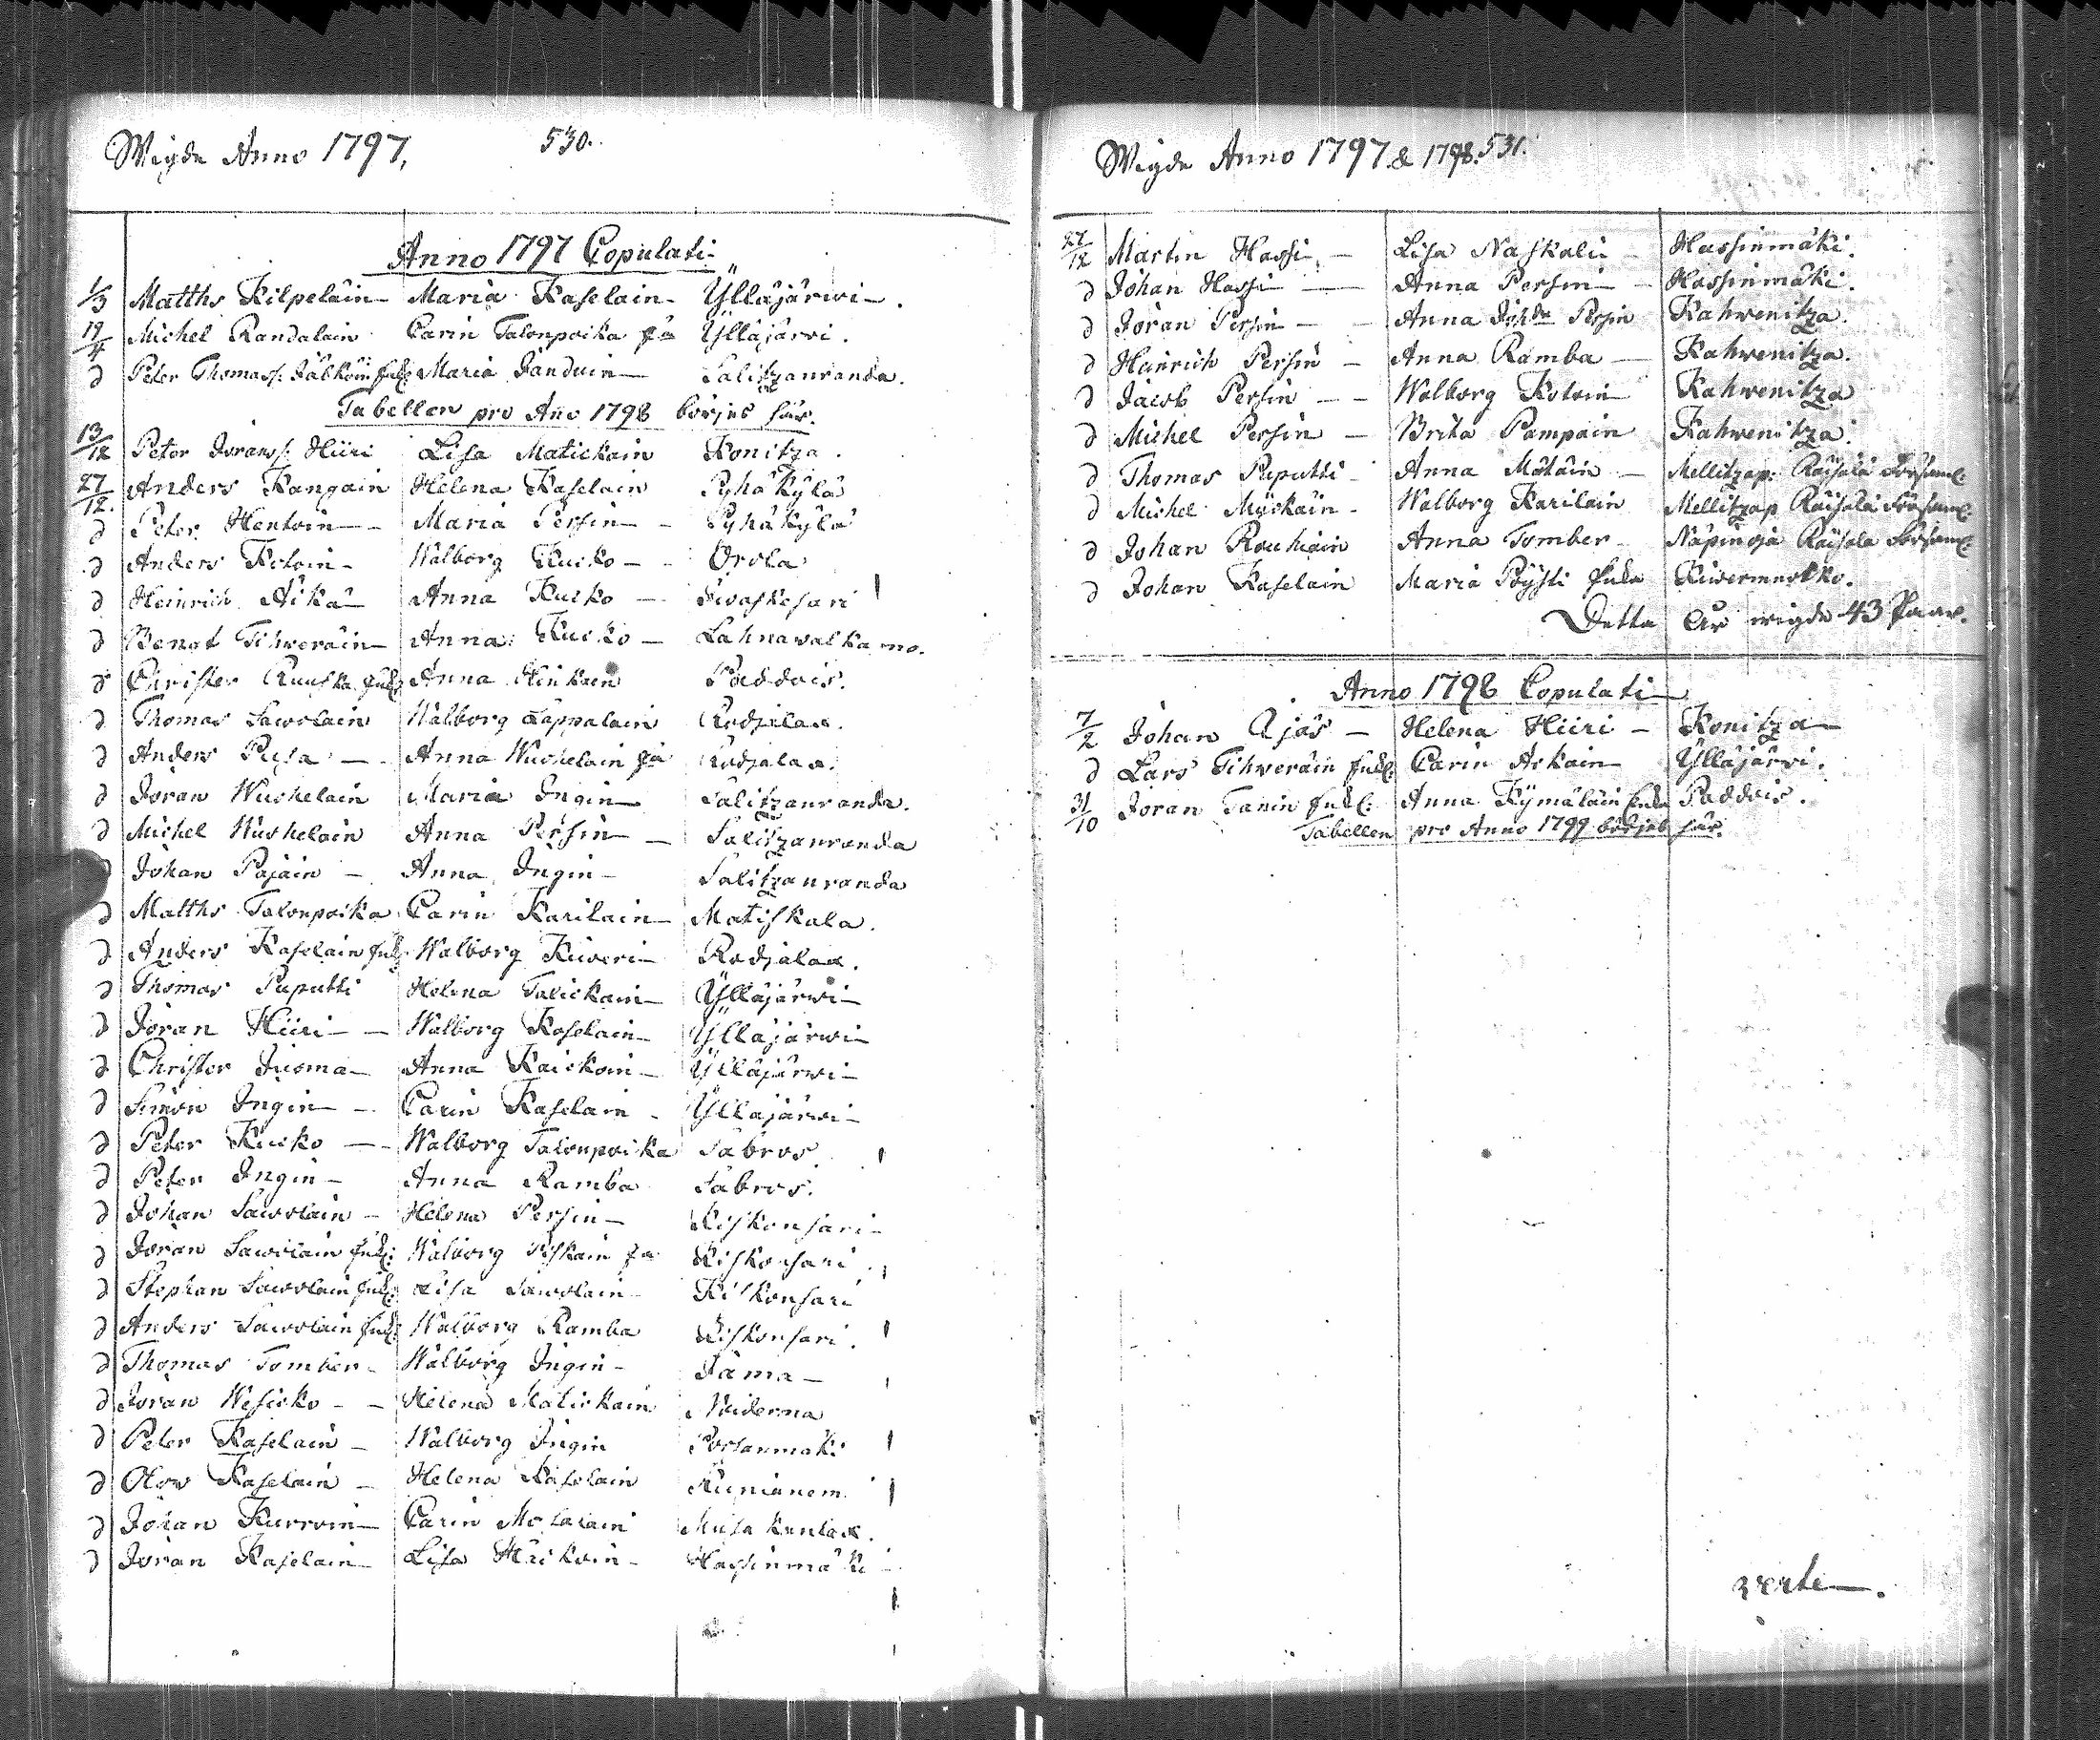 Wigde Anno 1797, 530.
Anno 1797 Copulati
1/3 Matths Kilpeläin Maria Kaselain Ylläjärwi.
19/4 Michel Randalain Carin Talonpoika Ylläjärvi.
d Peter Thomass: Jälköin Maria Janduin Salitzanranda.
Tabellen pro Ano 1798 börjes här.
13/12 Peter Jöranss: Hiiri Lisa Matickain Konitza.
27/12. Anders Kangain Helena Kaselain Pyhäkylä
d Peter Hentoin Maria Persin Pyhäkylä
d Anders Kotoin Walborg Kucko Orola
d Heinrich Äikä Anna Kucko
d Bengt Tihweräin Anna Kucko Lahnawalkamo.
d Christer Ruuska Anna Hinkain Paddois.
d Thomas Sawolain Walborg Lappalain Rodjalax.
d Anders Pusa Anna Wushelain Rodjalax.
d Jöran Wushelain Maria Ingin Salitzanranda.
d Michel Wushelain Anna Persin Salitzanranda
d Johan Pajain Anna Ingin Salitzanranda
d Matths Talonpoika Carin Karilain Matiskala.
d Anders Kaselain Walborg Kiweri Rodjalax.
d Thomas Puputti Helena Talickain Ylläjärwi
d Jöran Hiiri Walborg Kaselain Ylläjärwi
d Christer Juoma Anna Kaickoin Ylläjärwi
d Simon Ingin Carin Kaselain Ylläjärwi
d Peter Kucko Walborg Talonpoika Sabros
d Peter Ingin Anna Ramba Sabros.
d Johan Sawolain Helena Persin Kiskonsari
d Jöran Sawolain Walborg Kiskonsari
d Stephan Sawolain Lisa Sawolain Kiskonsari
d Anders Sawolain Walborg Ramba Kiskonsari.
d Thomas Tomber Walborg Ingin Tama
d Jöran Wesicko Helena Matickain
d Peter Kaselain Walborg Ingin Porsanmäki
d Olov Kaselain Helena Kaselain
d Johan Kurroin Carin
d Jöran Kaselain Lisa Häikoin Hassinmäki
Wigde Anno 1797. & 1798. 531.
27/12 Martin Hassi Lisa Naskali Hassinmäki.
d Johan Hassi Anna Persin Hassinmäki.
d Jöran Persin Anna Johdr Persin Kahwenitza.
d Heinrich Persin Anna Ramba Kahwenitza.
d Jacob Persin Walborg Kotoin Kahwenitza
d Michel Persin Brita Pampain Kahwenitza.
d Thomas Puputti Anna Mätäin Mellitzap. Räisälä Församl:
d Michel Myckäin Walborg Karilain Mellitzap Räisälä Församl:
d Johan Rouhiain Anna Tomber Näpinoja Räisälä Församl:
d Johan Kaselain Maria Pöysti Enka
Detta År wigde 43 Paar.
Anno 1798 Copulati
7/2 Johan Äjäs Helena Hiiri Konitza
d Lars Tihweräin Carin Askain Ylläjärvi.
31/10 Jöran Tanin Anna Kymäläin Enka Paddois.
Tabellen pro Anno 1799 börjes här.
verte.